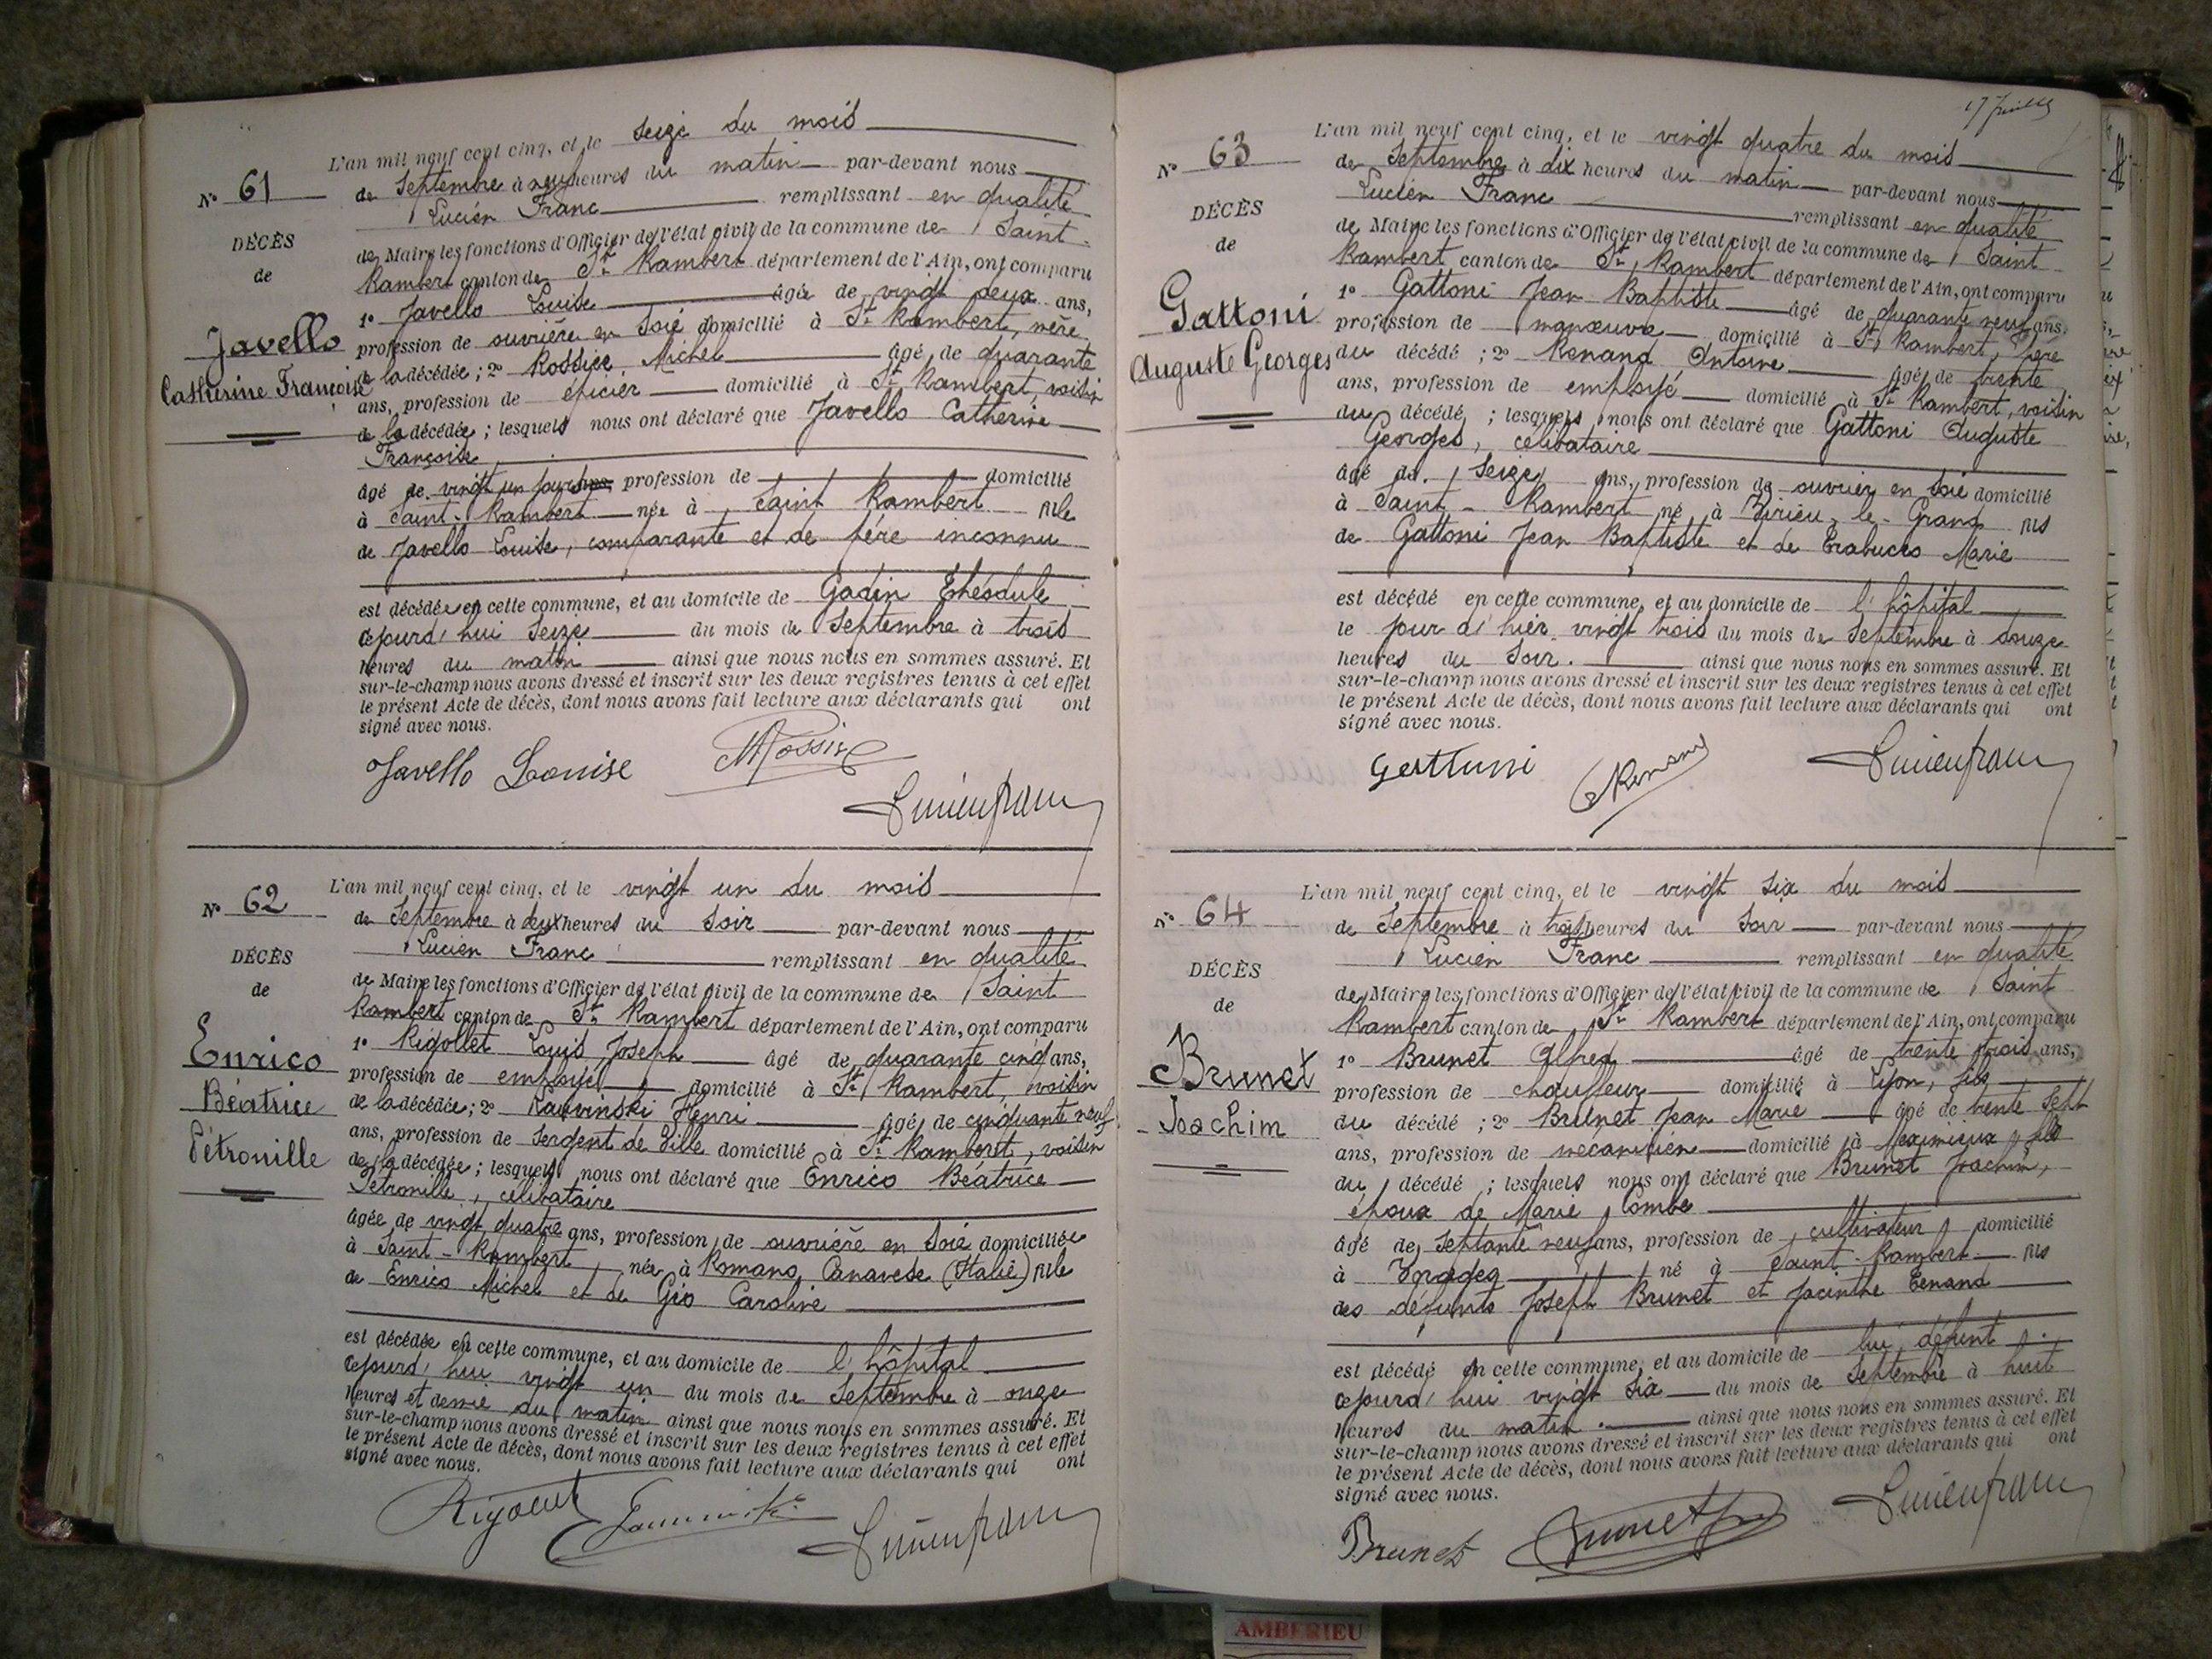 N° 61
DÉCÈS
de
Javello
Catherine Françoise
L'an mil neuf cent cinq, et le seize du mois
de Septembre à neuf heures du matin par-devant nous
Lucien Franc remplissant en qualité
de Maire les fonctions d'Officier de l'état civil de la commune de Saint-
Rambert canton de St Rambert département de l'Ain, ont comparu
1° Javello Louise âgée de vingt deux ans,
profession de ouvrière en soie domicilié à St Rambert, mère
de la décédée ; 2° Rossier Michel âgé de quarante
ans, profession de épicier domicilié à St Rambert, voisin
de la décédée ; lesquels nous ont déclaré que Javello Catherine
Françoise
âgé de vingt un jours ans, profession de domicilié
à Saint-Rambert née à Saint Rambert fille
de Javello Louise, comparante et de père inconnu
est décédée en cette commune, et au domicile de Gadin Théodule
cejourd'hui seize du mois de Septembre à trois
heures du matin ainsi que nous nous en sommes assuré. Et
sur-le-champ nous avons dressé et inscrit sur les deux registres tenus à cet effet
le présent Acte de décès, dont nous avons fait lecture aux déclarants qui ont
signé avec nous.
Javello Louise MRossier
Lucien franc
N° 62
DÉCÈS
de
Enrico
Béatrice
Pétronille
L'an mil neuf cent cinq, et le vingt un du mois
de Septembre à deux heures du soir par-devant nous
Lucien Franc remplissant en qualité
de Maire les fonctions d'Officier de l'état civil de la commune de Saint
Rambert canton de St Rambert département de l'Ain, ont comparu
1° Rigollet Louis Joseph âgé de quarante cinq ans,
profession de employé domicilié à St Rambert, voisin
de la décédée ; 2° Henri âgé de cinquante neuf
ans, profession de Sergent de Ville domicilié à St Rambert, voisin
de la décédée ; lesquels nous ont déclaré que Enrico Béatrice
Pétronille, célibataire
âgée de vingt quatre ans, profession de ouvrière en soie domiciliée
à Saint-Rambert, née à Romano Canavese (Italie) fille
de Enrico Michel et de Gio Caroline
est décédée en cette commune, et au domicile de l'hôpital
cejourd'hui vingt un du mois de Septembre à onze
heures et demie du matin ainsi que nous nous en sommes assuré. Et
sur-le-champ nous avons dressé et inscrit sur les deux registres tenus à cet effet
le présent Acte de décès, dont nous avons fait lecture aux déclarants qui ont
signé avec nous.
Lucien franc
17 Juillet
N° 63
DÉCÈS
de
Gattoni
Auguste Georges
L'an mil neuf cent cinq, et le vingt quatre du mois
de Septembre à dix heures du matin par-devant nous
Lucien Franc remplissant en qualité
de Maire les fonctions d'Officier de l'état civil de la commune de Saint
Rambert canton de St Rambert département de l'Ain, ont comparu
1° Gattoni Jean Baptiste âgé de quarante neuf ans,
profession de manœuvre domicilié à St Rambert, père
du décédé ; 2° Renand Antoine âgé de trente
ans, profession de employé domicilié à St Rambert, voisin
du décédé ; lesquels nous ont déclaré que Gattoni Auguste
Georges, célibataire
âgé de seize ans, profession de ouvrier en soie domicilié
à Saint-Rambert né à Virieu-le-Grand fils
de Gattoni Jean Baptiste et de Marie
est décédé en cette commune, et au domicile de l'hôpital
le jour d'hier vingt trois du mois de Septembre à douze
heures du soir. ainsi que nous nous en sommes assuré. Et
sur-le-champ nous avons dressé et inscrit sur les deux registres tenus à cet effet
le présent Acte de décès, dont nous avons fait lecture aux déclarants qui ont
signé avec nous.
Renand Lucien franc
N° 64
DÉCÈS
de
Brunet
Joachim
L'an mil neuf cent cinq, et le vingt six du mois
de Septembre à trois heures du soir par-devant nous
Lucien Franc remplissant en qualité
de Maire les fonctions d'Officier de l'état civil de la commune de Saint
Rambert canton de St Rambert département de l'Ain, ont comparu
1° Brunet Alfred âgé de trente trois ans,
profession de chauffeur domicilié à Lyon, fils
du décédé ; 2° Brunet Jean Marie âgé de trente sept
ans, profession de mécanicien domicilié à Meximieux, fils
du décédé ; lesquels nous ont déclaré que Brunet Joachim,
époux de Marie Combe
âgé de septante neuf ans, profession de cultivateur domicilié
à né à Saint-Rambert fils
des défunts Joseph Brunet et Jacinthe Tenand
est décédé en cette commune, et au domicile de lui défunt
cejourd'hui vingt six du mois de Septembre à huit
heures du matin. ainsi que nous nous en sommes assuré. Et
sur-le-champ nous avons dressé et inscrit sur les deux registres tenus à cet effet
le présent Acte de décès, dont nous avons fait lecture aux déclarants qui ont
signé avec nous.
Brunet Brunet Lucien franc
AMBERIEU